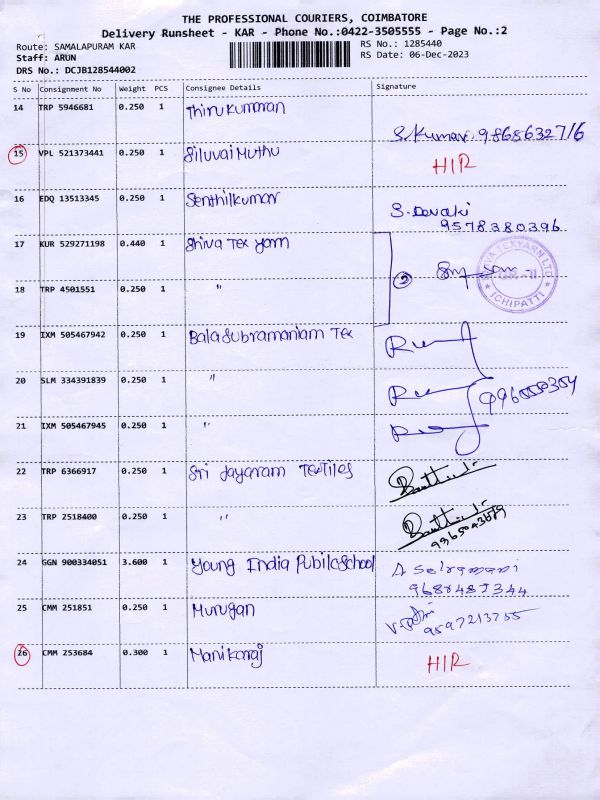 THE PROFESSIONAL COURIERS, COIMBATORE
Delivery Runsheet - KAR - Phone No.:0422-3505555 - Page No.:2
Route: SAMALAPURAM KAR
RS No.: 1285440
Staff: ARUN
RS Date: 06-Dec-2023
DRS No.: DCJB128544002
S No Consignment No Weight PCS Consignee Details Signature
14 TRP 5946681 0.250 1 Thirukumaran
S.Kumar. 9865632716
15 VPL 521373441 0.250 1 Siluvai Muthu HIR
16 EDQ 13513345 0.250 1 Senthilkumar S. Devaki
9578380396
17 KUR 529271198 0.440 1 Shiva Tex yarn
2
ICHIPATTI
18 TRP 4501551 0.250 1 "
19 IXM 505467942 0.250 1 Balasubramaniam Tex
20 SLM 334391839 0.250 1 "
21 IXM 505467945 0.250 1 "
22 TRP 6366917 0.250 1 Sri Jayaram Textiles
23 TRP 2518400 0.250 1 "
24 GGN 900334051 3.600 1 Young India Public School
25 CMM 251851 0.250 1 Murugan
9597213755
26 CMM 253684 0.300 1 Manikaraj HIR